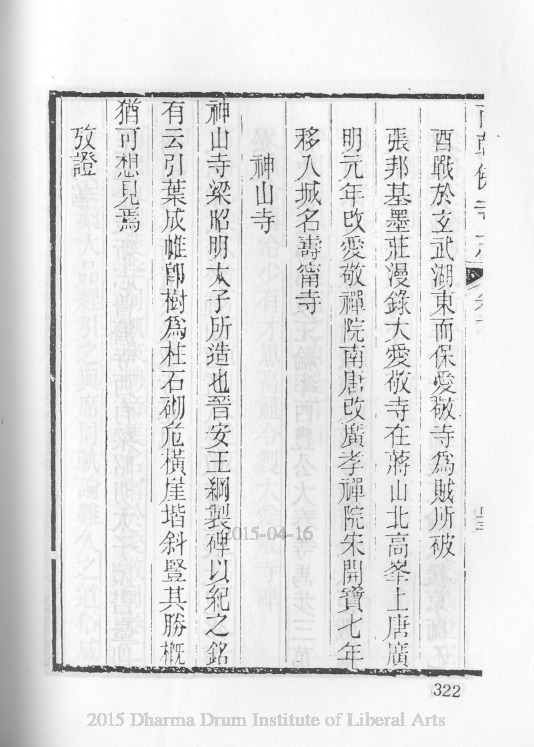 酉戰於玄武湖東而保愛敬寺爲賊所破
張邦基墨莊漫錄大愛敬寺在蔣山北高峯上唐廣
明元年改愛敬禪院南唐改廣孝禪院宋開寶七年
移入城名壽甯寺
神山寺
神山寺梁昭明太子所造也晉安王綱製碑以紀之銘
有云引葉成帷卽樹爲柱石砌危橫崖堦斜豎其勝概
猶可想見焉
攷證
2015-04-16
322
2015 Dharma Drum Institute of Liberal Arts